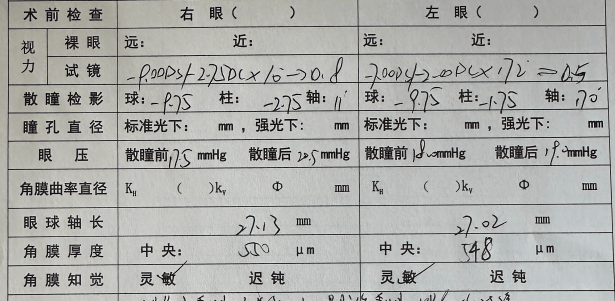 术前检查 右眼（ ） 左眼（ ）
视力 裸眼 远： 近： 远： 近：
试镜 -9.00DS/-2.75DC×10→0.8 -9.00DS/-2.00DC×172→0.5
散瞳检影 球：-9.75 柱：-2.75 轴：11° 球：-9.75 柱：-1.75 轴：170°
瞳孔直径 标准光下： mm ，强光下： mm 标准光下： mm ，强光下： mm
眼压 散瞳前17.5mmHg 散瞳后20.5mmHg 散瞳前18.0mmHg 散瞳后19.0mmHg
角膜曲率直径 KH ( )kV Φ mm KH ( )kV Φ mm
眼球轴长 27.13 mm 27.02 mm
角膜厚度 中央： 550 μm 中央： 548 μm
角膜知觉 灵敏 迟钝 灵敏 迟钝